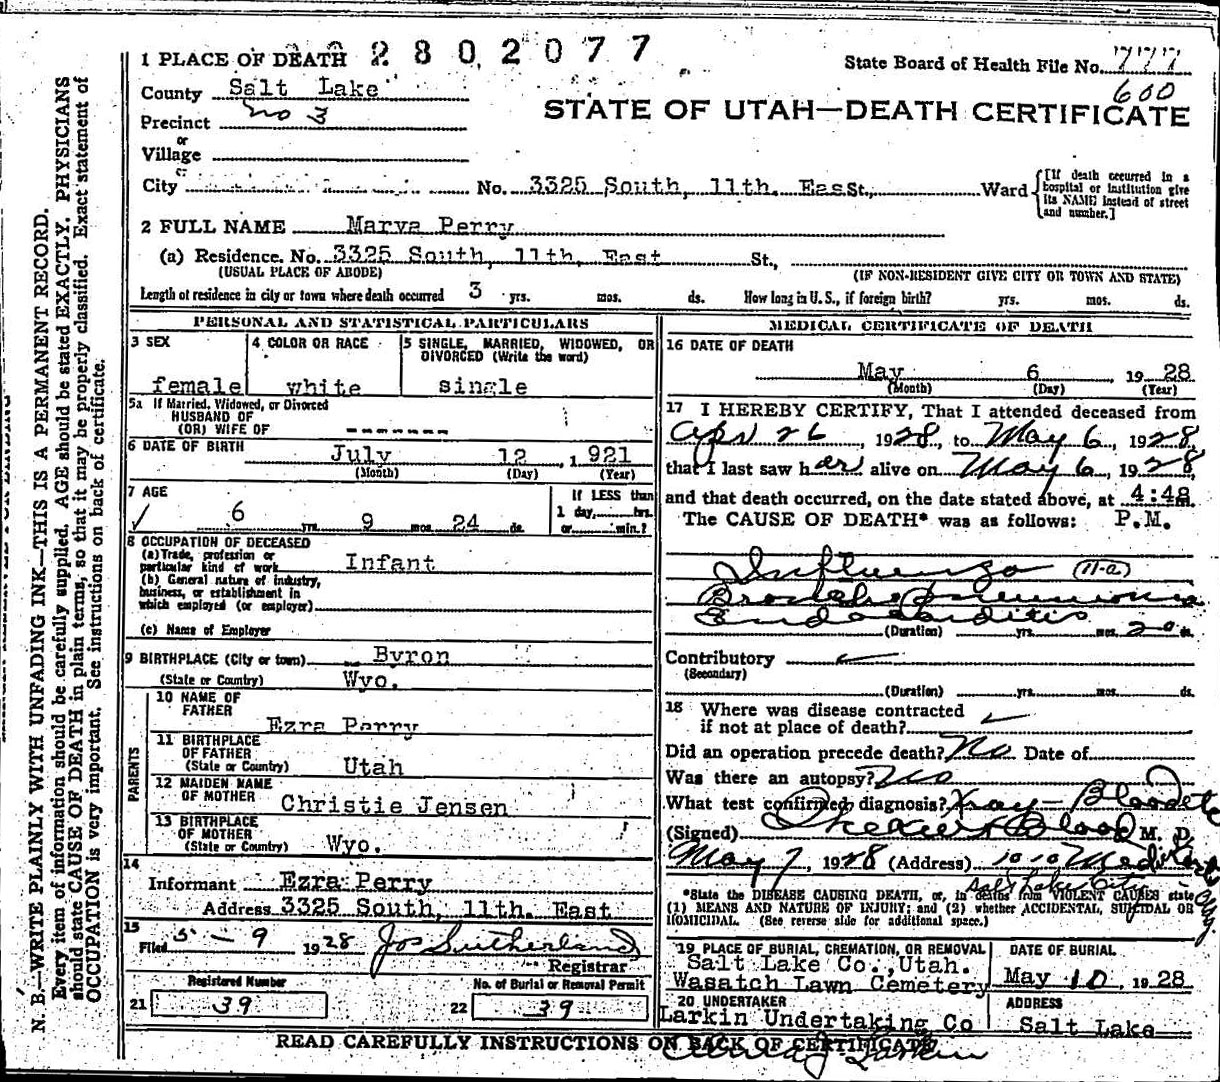 2 8 0 2 0 7 7
1 PLACE OF DEATH
State Board of Health File No. 777
600
County Salt Lake
STATE OF UTAH—DEATH CERTIFICATE
Precinct no 3
or
Village
City No. 3325 South, 11th. East St., Ward
[If death occurred in a hospital or institution give its NAME instead of street and number.]
2 FULL NAME Marva Perry
(a) Residence. No. 3325 South, 11th, East St.,
(USUAL PLACE OF ABODE) (IF NON-RESIDENT GIVE CITY OR TOWN AND STATE)
Length of residence in city or town where death occurred 3 yrs. mos. ds. How long in U. S., if foreign birth? yrs. mos. ds.
PERSONAL AND STATISTICAL PARTICULARS
3 SEX
female
4 COLOR OR RACE
white
5 SINGLE, MARRIED, WIDOWED, OR DIVORCED (Write the word)
single
5a If Married, Widowed, or Divorced
HUSBAND OF
(OR) WIFE OF -------
6 DATE OF BIRTH July 12, 1921
(Month) (Day) (Year)
7 AGE
6 yrs. 9 mos. 24 ds.
If LESS than
1 day, hrs.
or min.?
8 OCCUPATION OF DECEASED
(a) Trade, profession or
particular kind of work Infant
(b) General nature of industry,
business, or establishment in
which employed (or employer)
(c) Name of Employer
9 BIRTHPLACE (City or town) Byron
(State or Country) Wyo.
PARENTS
10 NAME OF
FATHER Ezra Perry
11 BIRTHPLACE
OF FATHER
(State or Country) Utah
12 MAIDEN NAME
OF MOTHER Christie Jensen
13 BIRTHPLACE
OF MOTHER
(State or Country) Wyo.
14
Informant Ezra Perry
Address 3325 South, 11th. East
15
Filed 5 - 9 1928 Jos Sutherland
Registrar
Registered Number
21 39
No. of Burial or Removal Permit
22 39
MEDICAL CERTIFICATE OF DEATH
16 DATE OF DEATH
May 6, 1928
(Month) (Day) (Year)
17 I HEREBY CERTIFY, That I attended deceased from
Apr 26, 1928, to May 6, 1928,
that I last saw her alive on May 6, 1928,
and that death occurred, on the date stated above, at 4:48 m.
The CAUSE OF DEATH* was as follows: P.M.
Influenza (11-a)
Broncho pneumonia
Endocarditis
(Duration) yrs. mos. 20 ds.
Contributory
(Secondary)
(Duration) yrs. mos. ds.
18 Where was disease contracted
if not at place of death?
Did an operation precede death? No Date of
Was there an autopsy? No
What test confirmed diagnosis? Xray - Blood etc
(Signed) Blood M. D.
May 7, 1928 (Address) 1010 Med Arts
Salt Lake City
*State the DISEASE CAUSING DEATH, or, in deaths from VIOLENT CAUSES state
(1) MEANS AND NATURE OF INJURY; and (2) whether ACCIDENTAL, SUICIDAL OR
HOMICIDAL. (See reverse side for additional space.)
19 PLACE OF BURIAL, CREMATION, OR REMOVAL
Salt Lake Co., Utah.
Wasatch Lawn Cemetery
DATE OF BURIAL
May 10, 1928
20 UNDERTAKER
Larkin Undertaking Co
ADDRESS
Salt Lake
READ CAREFULLY INSTRUCTIONS ON BACK OF CERTIFICATE
Larkin
N. B.—WRITE PLAINLY WITH UNFADING INK—THIS IS A PERMANENT RECORD.
Every item of information should be carefully supplied. AGE should be stated EXACTLY. PHYSICIANS
should state CAUSE OF DEATH in plain terms, so that it may be properly classified. Exact statement of
OCCUPATION is very important. See instructions on back of certificate.